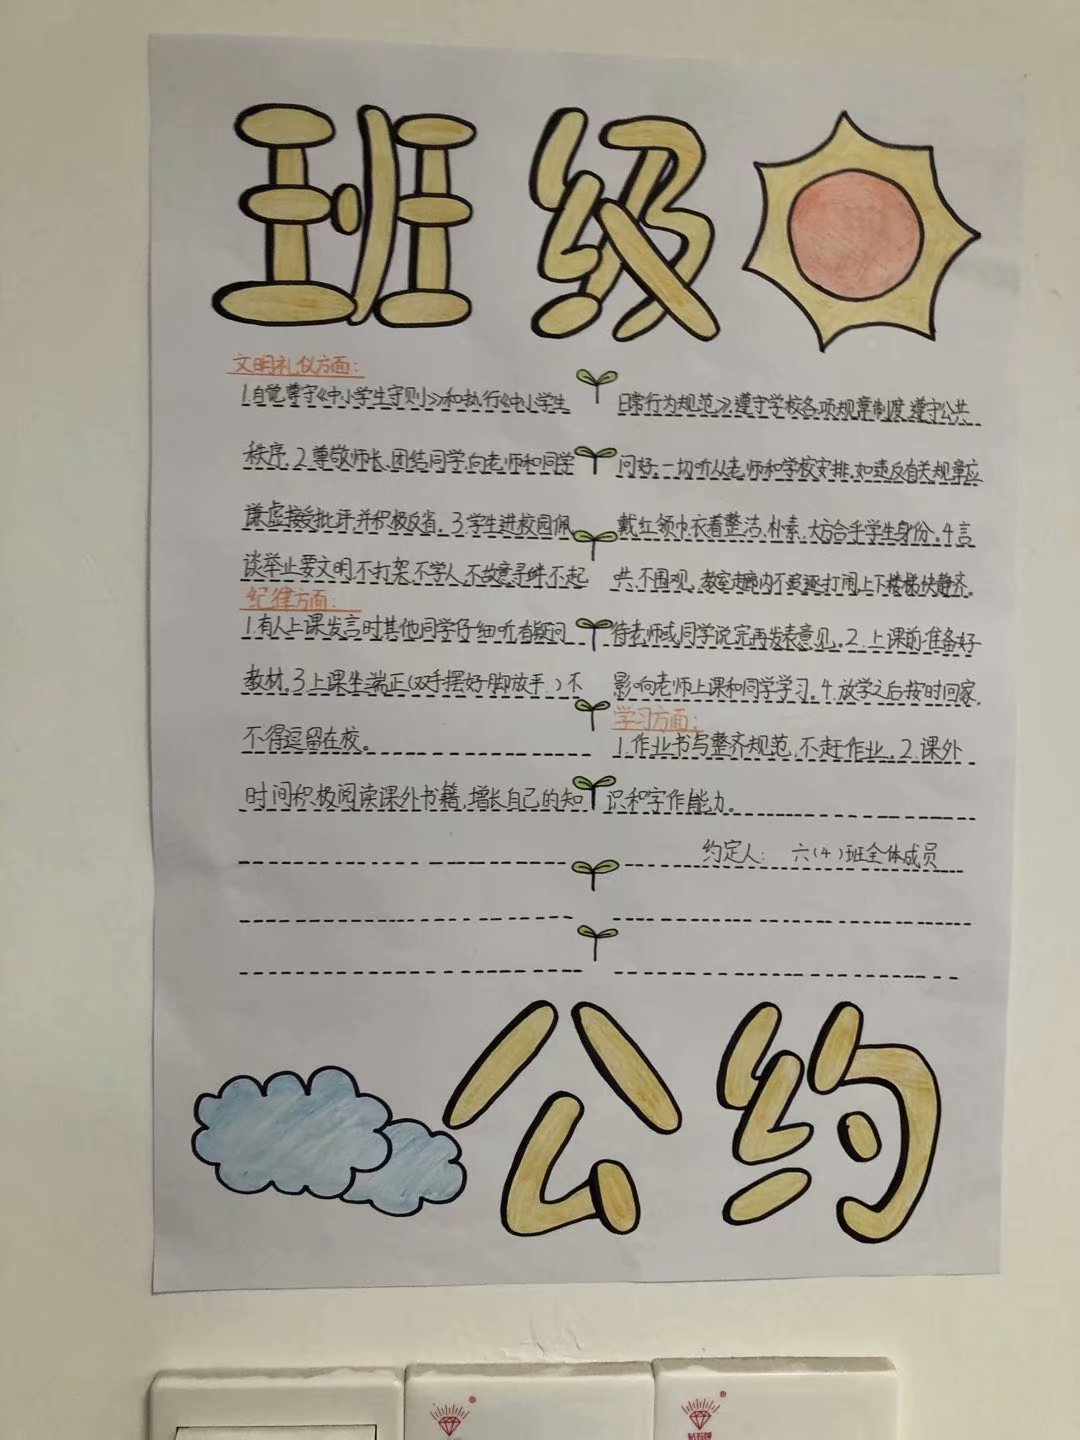 班级
文明礼仪方面:
1.自觉尊守《中小学生守则》和执行《中小学生日常行为规范》,遵守学校各项规章制度,遵守公共
秩序。2.尊敬师长,团结同学,向老师和同学问好,一切听从老师和学校安排,如违反有关规章应
谦虚接受批评,并积极反省。3.学生进校园佩戴红领巾,衣着整洁,朴素,大方合乎学生身份。4.言
谈举止要文明,不打架,不学人,不故意寻衅,不起共,不围观,教室走廊内不追逐打闹,上下楼梯快静齐。
纪律方面:
1.有人上课发言时其他同学仔细听,有疑问待老师或同学说完再发表意见。2.上课前准备好
教材。3.上课坐端正(双手摆好,脚放平。)不影响老师上课和同学学习。4.放学之后按时回家,
不得逗留在校。
学习方面:
1.作业书写整齐规范,不赶作业。2.课外
时间积极阅读课外书籍,增长自己的知识和字作能力。
约定人: 六(4)班全体成员
公约